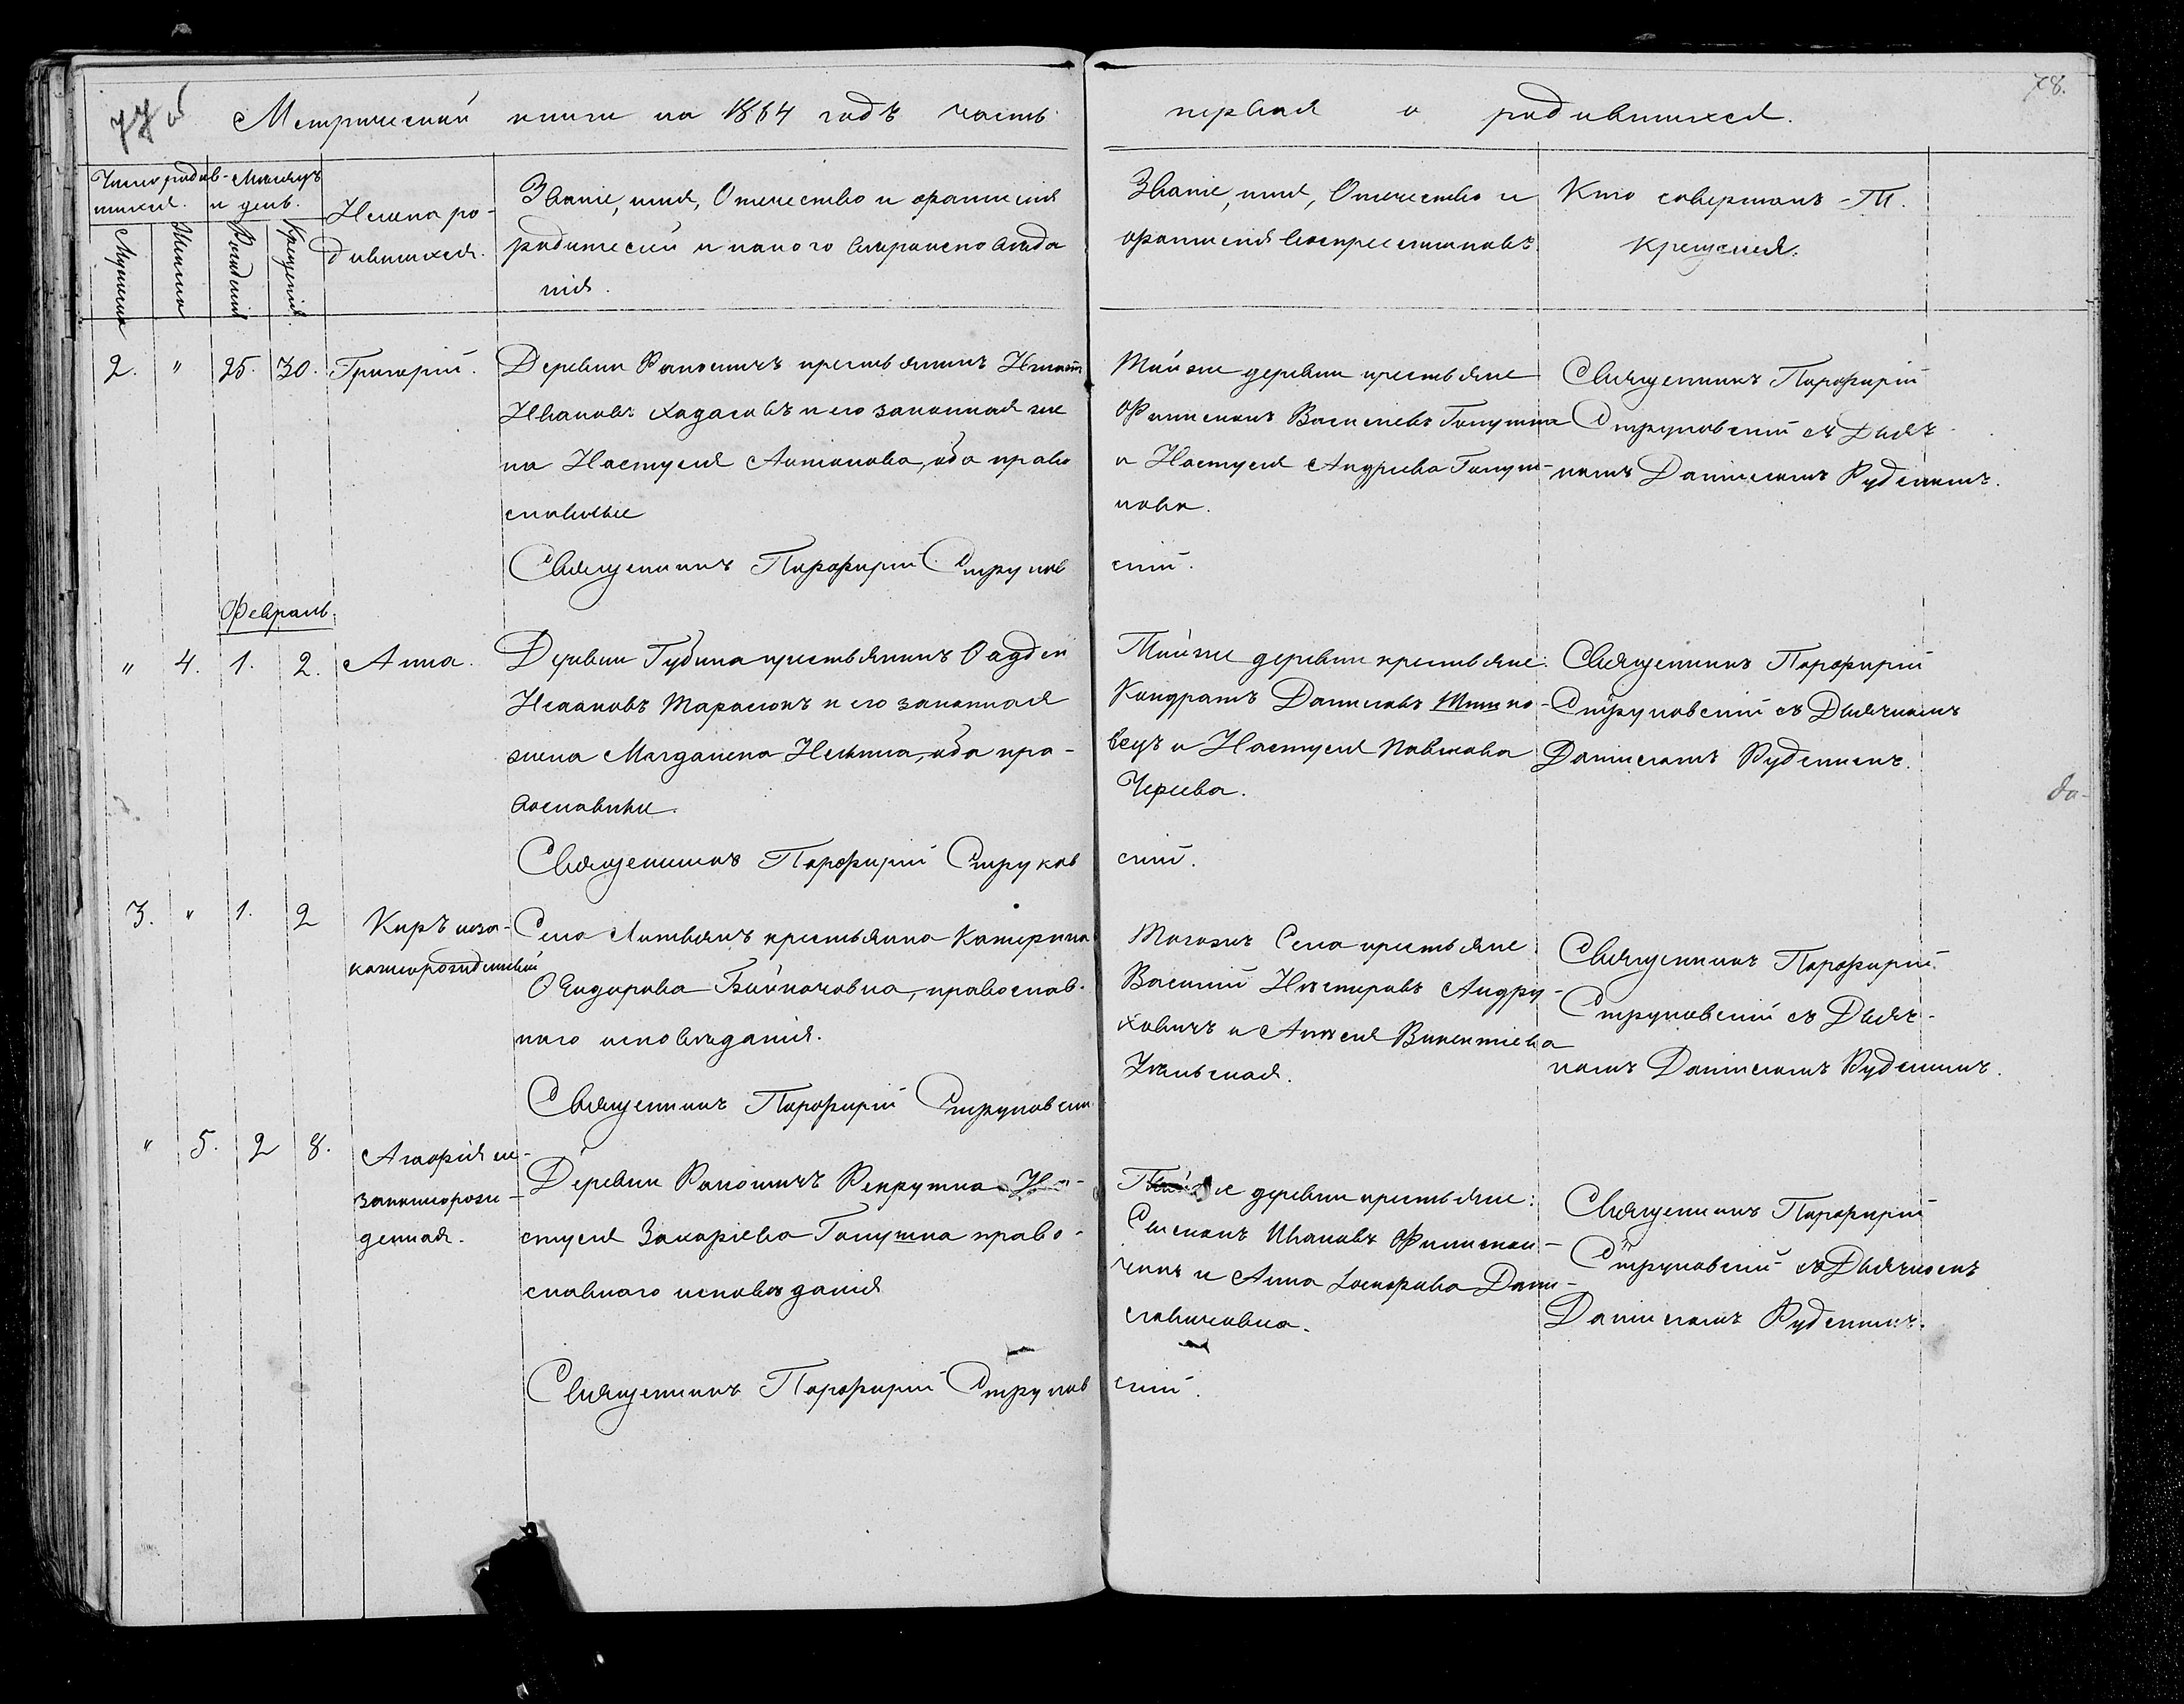 77 об
78.
Метрической книги на 1864 годъ часть первая о родившихся.
Число родив-
шихся.
Мѣсяцъ
и день.
Мужеска
Женска
Рожденія
Крещенія.
Имена ро-
дившихся.
Званіе, имя, Отечество и фамилія
родителей и какого вѣроисповѣда
нія.
Званіе, имя, Отечество и
фамилія воспреемниковъ.
Кто совершалъ Т.
крещенія.
2. " 25. 30. Григорій.
Деревни Ракошичъ крестьянинъ Игнатій
Ивановъ Хадасовъ и его законная же
на Настусія Антонова, оба право
славные
Священникъ Порфирій Струков
Тойже деревни крестьяне
Филимонъ Василіевъ Галушка
и Настусія Андріева Галуш-
кова.
скій.
Священникъ Порфирій
Струковскій съ Дьяч-
комъ Даниломъ Руденкомъ.
Февраль.
" 4. 1. 2. Анна.
Деревни Губина крестьянинъ Оадей
Исааковъ Тарасюкъ и его законная
жена Магдалена Ильина, оба пра-
вославные.
Священникъ Порфирій Струков
Тойже деревни крестьяне:
Кондратъ Даниловъ Шинко-
вецъ и Настусія Павлова
Череева.
скій.
Священникъ Порфирій
Струковскій съ Дьячкомъ
Даниломъ Руденкомъ.
да-
3. " 1. 2
Киръ неза-
коннорожденный
Села Литвянъ крестьянка Катерина
Ѳеидорова Бойкачовна, православ-
наго исповѣданія.
Священникъ Порфирій Струковскій
Тогожъ Села крестьяне
Василій Несторовъ Андру-
ховичъ и Анжелія Викентіева
Ульская.
Священникъ Порфирій
Струковскій съ Дьяч-
комъ Даниломъ Руденкомъ.
" 5. 2 8.
Агафія не-
законнорож-
денная.
Деревни Ракошичъ Рекрутка На-
стусія Захаріева Галушка право-
славнаго исповѣданія
Священникъ Порфирій Струков
Тойже деревни крестьяне:
Симеонъ Ивановъ Филимон-
чикъ и Анна Дани-
ловичовна.
скій.
Священникъ Порфирій
Струковскій съ Дьячкомъ
Даниломъ Руденкомъ.